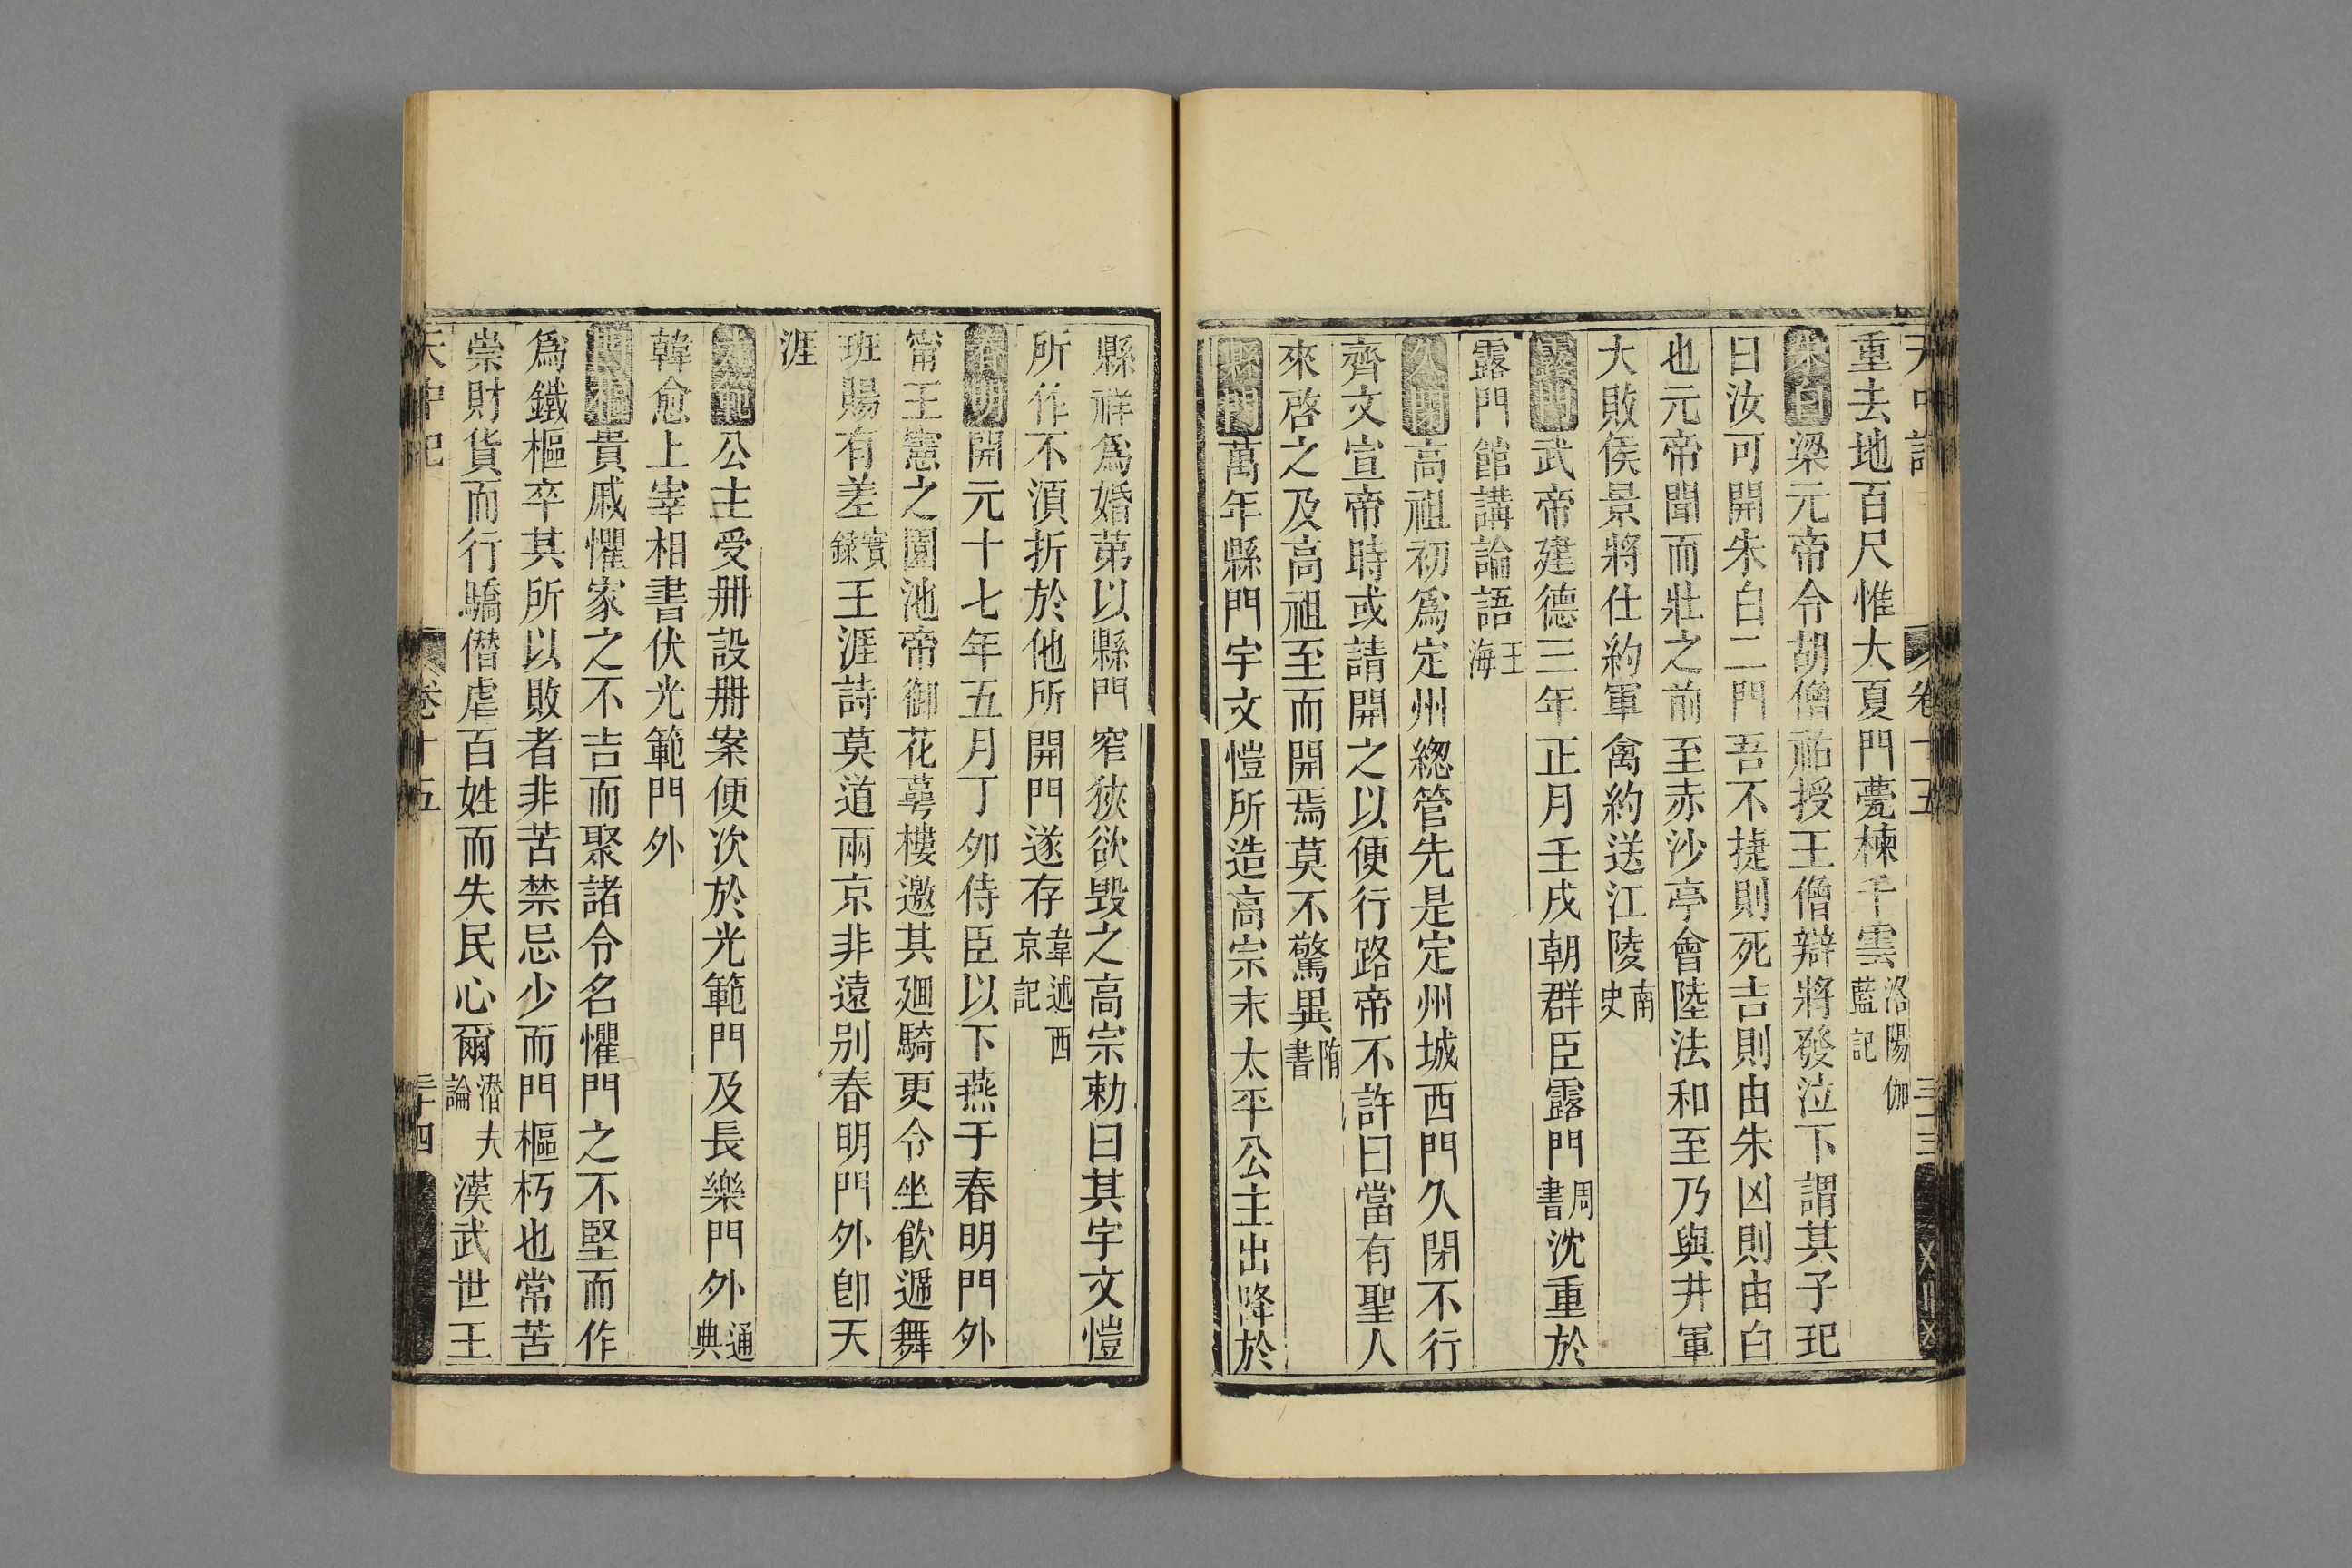 天中記 卷十五 三十三
重去地百尺惟大夏門甍棟千雲洛陽伽藍記
朱白梁元帝令胡僧祐授王僧辯將發泣下謂其子玘
曰汝可開朱白二門吾不捷則死吉則由朱凶則由白
也元帝聞而壯之前至赤沙亭會陸法和至乃與并軍
大敗侯景將任約軍禽約送江陵南史
露門武帝建德三年正月壬戌朝群臣露門周書沈重於
露門館講論語玉海
久閉高祖初爲定州緫管先是定州城西門久閉不行
齊文宣帝時或請開之以便行路帝不許曰當有聖人
來啓之及高祖至而開焉莫不驚異隋書
縣門萬年縣門宇文愷所造高宗末太平公主出降於
縣祥爲婚苐以縣門窄狹欲毀之高宗勅曰其宇文愷
所作不湏折於他所開門遂存韋述西京記
春明開元十七年五月丁夘侍臣以下燕于春明門外
甯王憲之園池帝御花萼樓邀其廻騎更令坐飲遞舞
班賜有差實録王涯詩莫道兩京非遠别春明門外卽天
涯
光範公主受册設册案便次於光範門及長樂門外通典
韓愈上宰相書伏光範門外
門樞貴戚懼家之不吉而聚諸令名懼門之不堅而作
爲鐵樞卒其所以敗者非苦禁忌少而門樞朽也常苦
崇財貨而行驕僭虐百姓而失民心爾潛夫論漢武世王
天中記 卷十五 三十四